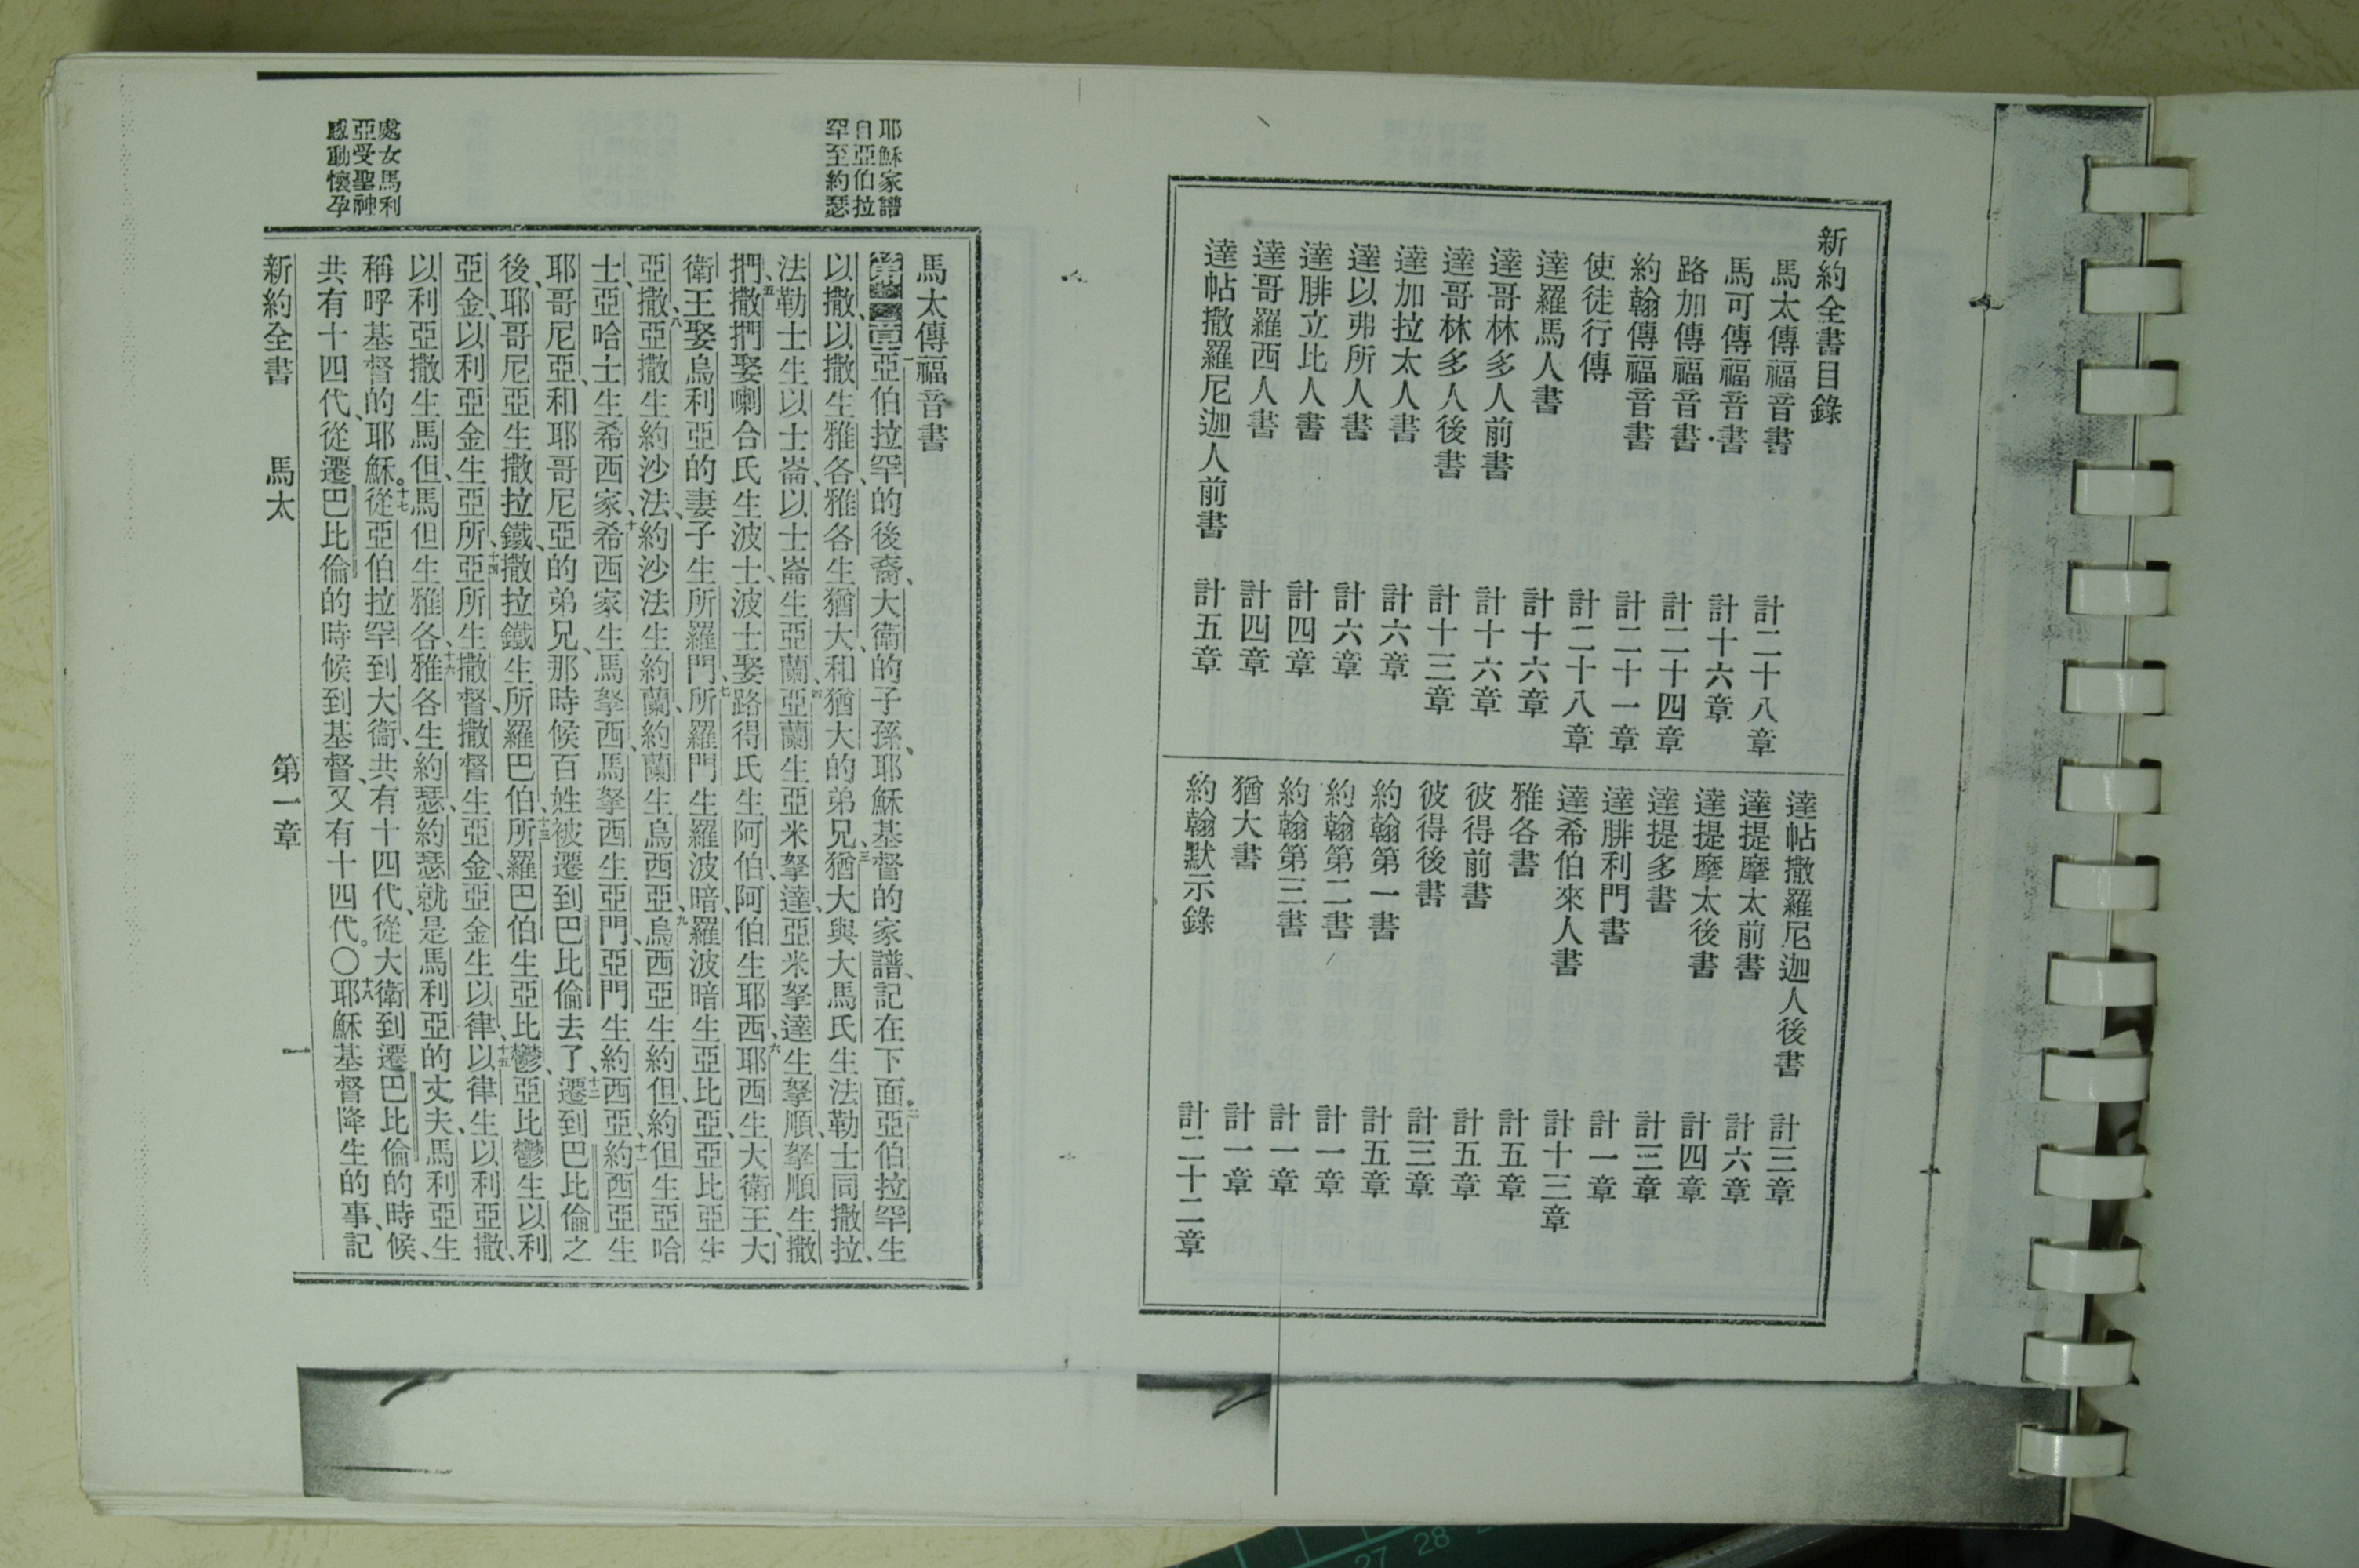 新約全書目錄
馬太傳福音書 計二十八章
馬可傳福音書 計十六章
路加傳福音書 計二十四章
約翰傳福音書 計二十一章
使徒行傳 計二十八章
達羅馬人書 計十六章
達哥林多人前書 計十六章
達哥林多人後書 計十三章
達加拉太人書 計六章
達以弗所人書 計六章
達腓立比人書 計四章
達哥羅西人書 計四章
達帖撒羅尼迦人前書 計五章
達帖撒羅尼迦人後書 計三章
達提摩太前書 計六章
達提摩太後書 計四章
達提多書 計三章
達腓利門書 計一章
達希伯來人書 計十三章
雅各書 計五章
彼得前書 計五章
彼得後書 計三章
約翰第一書 計五章
約翰第二書 計一章
約翰第三書 計一章
猶大書 計一章
約翰默示錄 計二十二章
耶穌家譜
自亞伯拉
罕至約瑟
處女馬利
亞受聖神
感動懷孕
馬太傳福音書
第一章 一亞伯拉罕的後裔、大衛的子孫、耶穌基督的家譜、記在下面。二亞伯拉罕生
以撒、以撒生雅各、雅各生猶大、和猶大的弟兄、三猶大與大馬氏生法勒士同撒拉、
法勒士生以士崙、以士崙生亞蘭、四亞蘭生亞米拏達、亞米拏達生拏順、拏順生撒
捫、五撒捫娶喇合氏生波士、波士娶路得氏生阿伯、阿伯生耶西、六耶西生大衛王、大
衛王娶烏利亞的妻子生所羅門、七所羅門生羅波暗、羅波暗生亞比亞、亞比亞生
亞撒、八亞撒生約沙法、約沙法生約蘭、約蘭生烏西亞、九烏西亞生約但、約但生亞哈
士、亞哈士生希西家、十希西家生馬拏西、馬拏西生亞門、亞門生約西亞、十一約西亞生
耶哥尼亞、和耶哥尼亞的弟兄、那時候百姓被遷到巴比倫去了、十二遷到巴比倫之
後、耶哥尼亞生撒拉鐵、撒拉鐵生所羅巴伯、十三所羅巴伯生亞比鬱、亞比鬱生以利
亞金、以利亞金生亞所、十四亞所生撒督、撒督生亞金、亞金生以律、十五以律生以利亞撒、
以利亞撒生馬但、馬但生雅各、十六雅各生約瑟、約瑟就是馬利亞的丈夫、馬利亞生
稱呼基督的耶穌。十七從亞伯拉罕到大衛、共有十四代、從大衛到遷巴比倫的時候、
共有十四代、從遷巴比倫的時候到基督、又有十四代。〇十八耶穌基督降生的事、記
新約全書 馬太 第一章 一
27 28